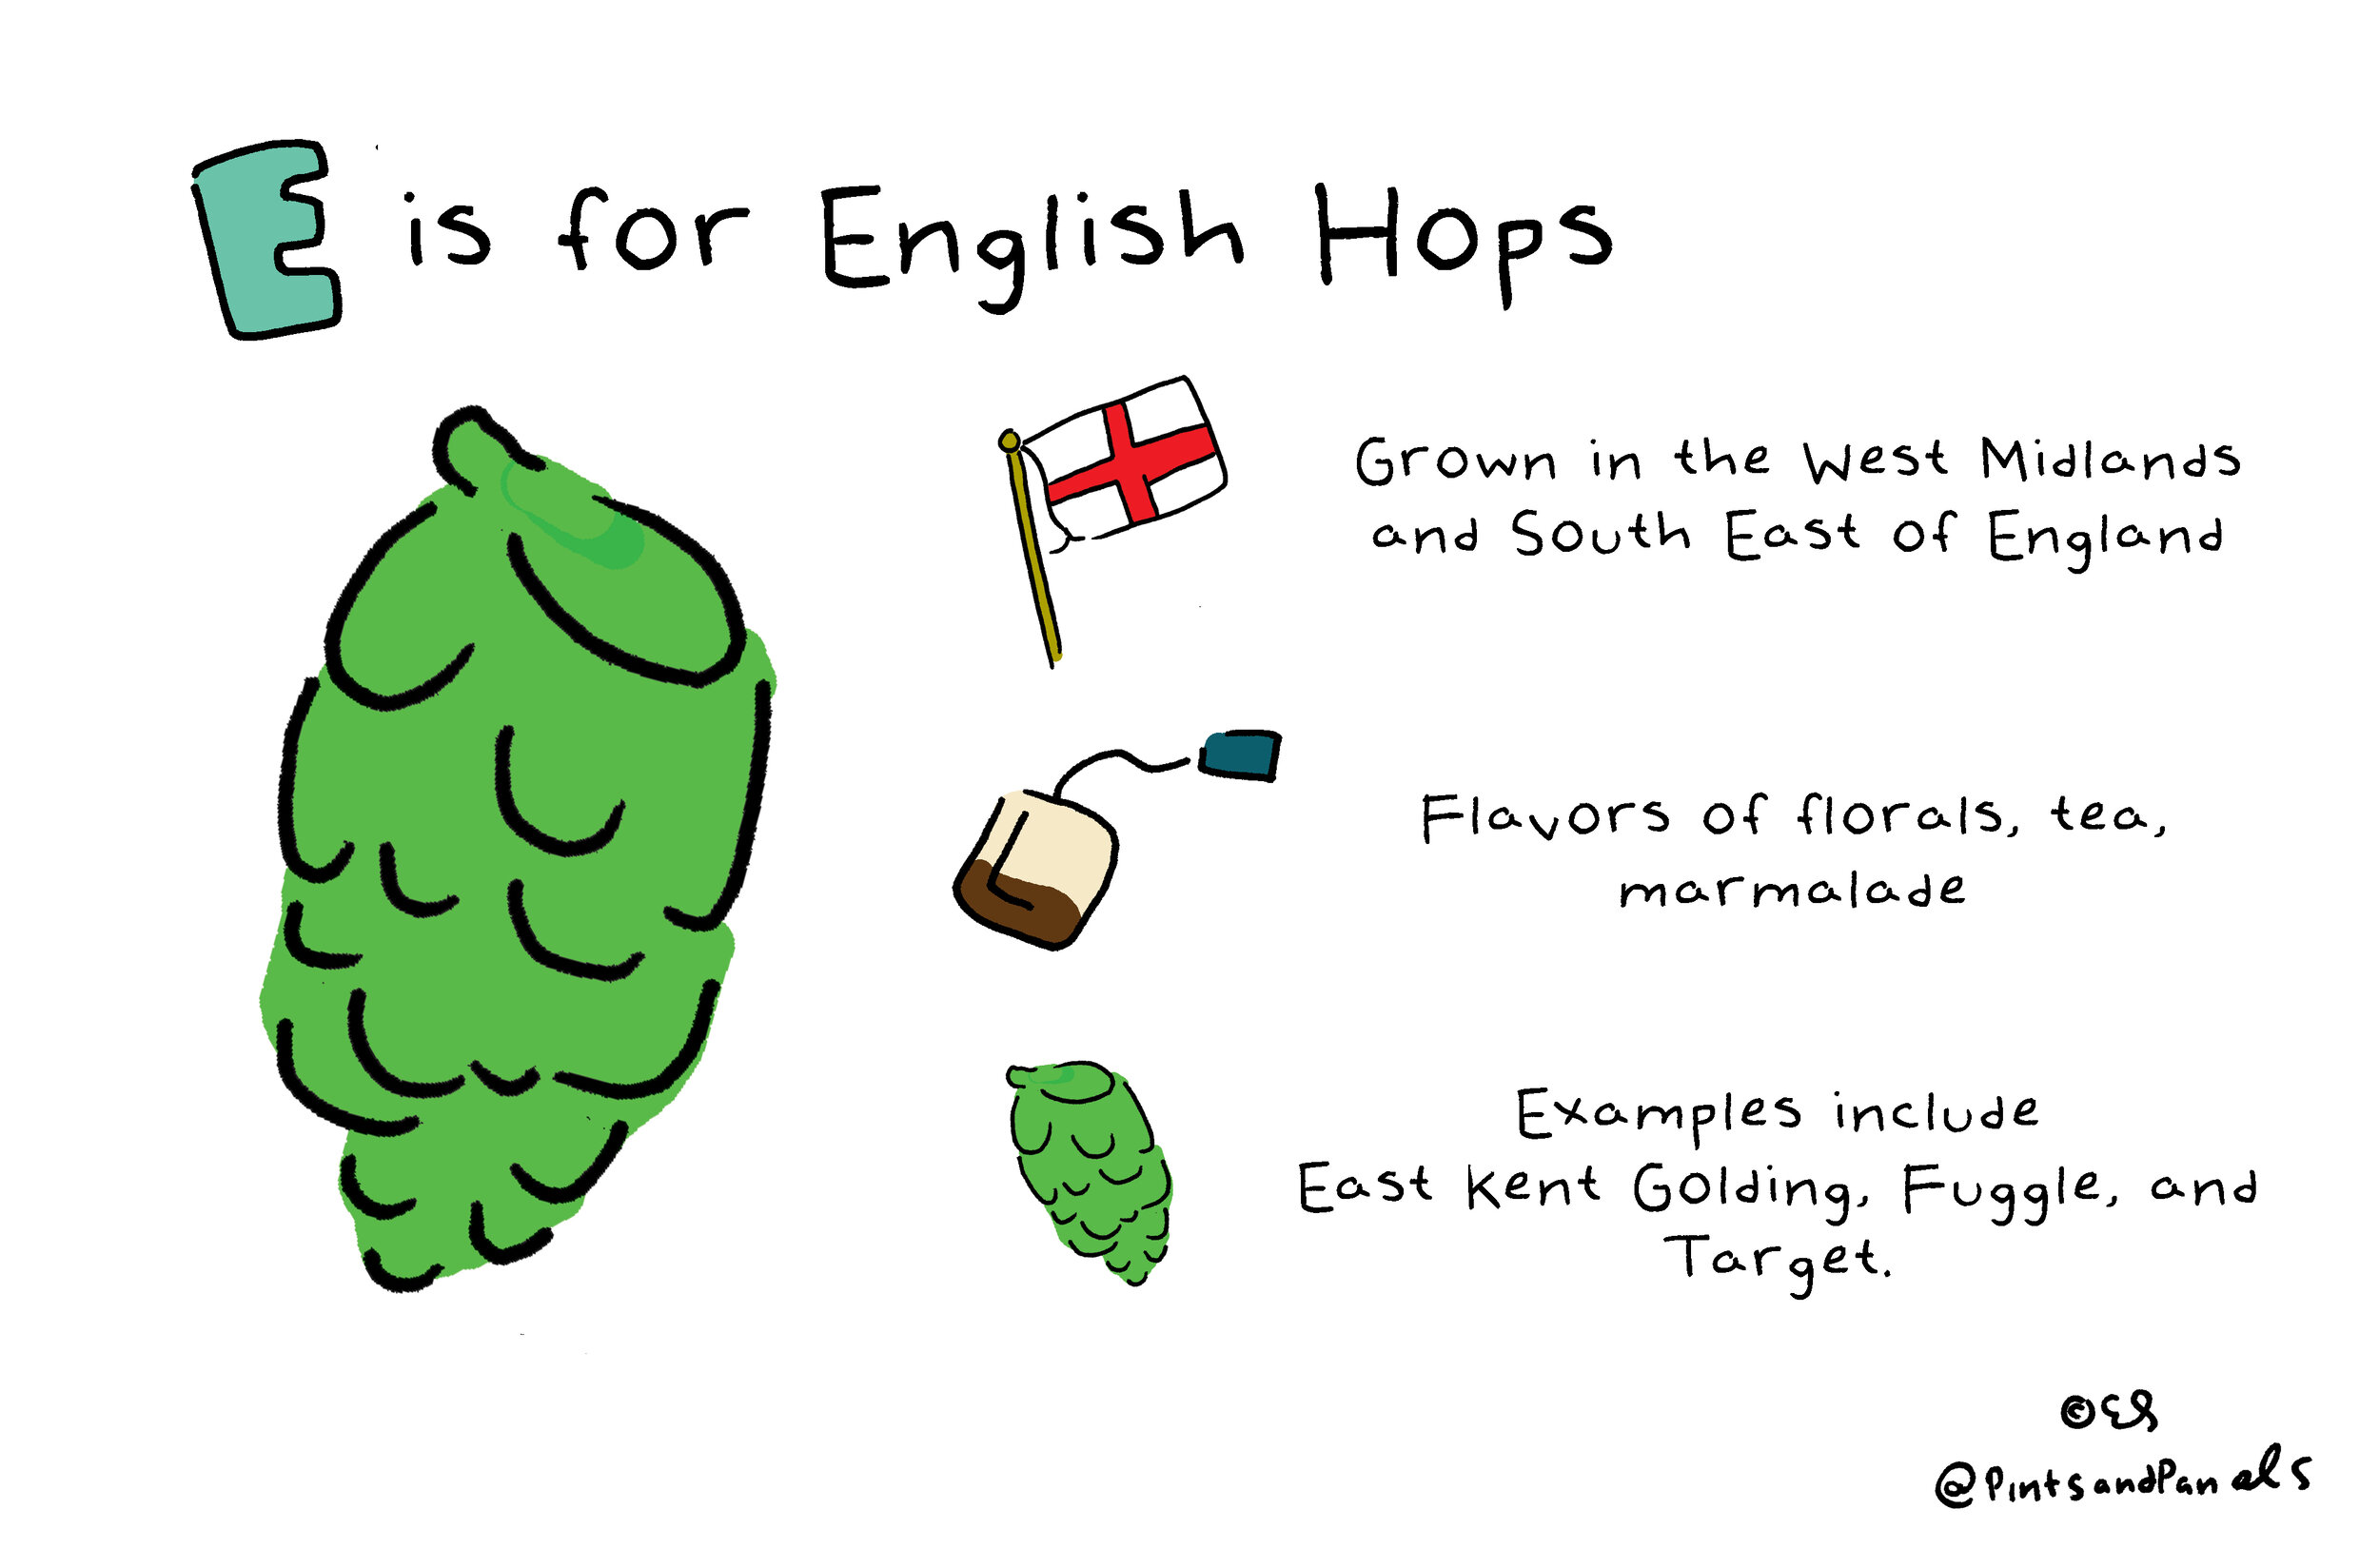 E is for English Hops
Grown in the West Midlands
and South East of England
Flavors of florals, tea,
marmalade
Examples include
East Kent Golding, Fuggle, and
Target.
©ES
@PintsandPanels